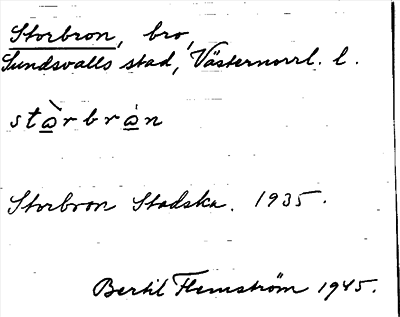 Storbron, bro,
Sundsvalls stad, Västernorrl. l.
stὼ̲rbrω̲̇n
Storbron Stadska. 1935.
Bertil Flemström 1945.